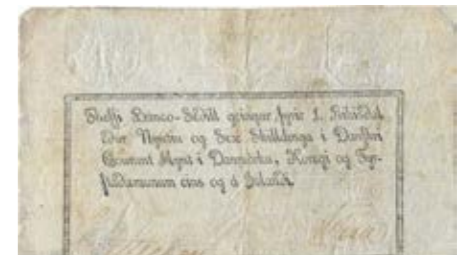 Thessi Banco-Sedill gengur fyrir 1. Rikisdal
Edur Niutiu og Sex Skilldinga i Danskri
Courant Mynt i Danmörku, Noregi og Fyr-
stadæmunum eins og á Islandi.